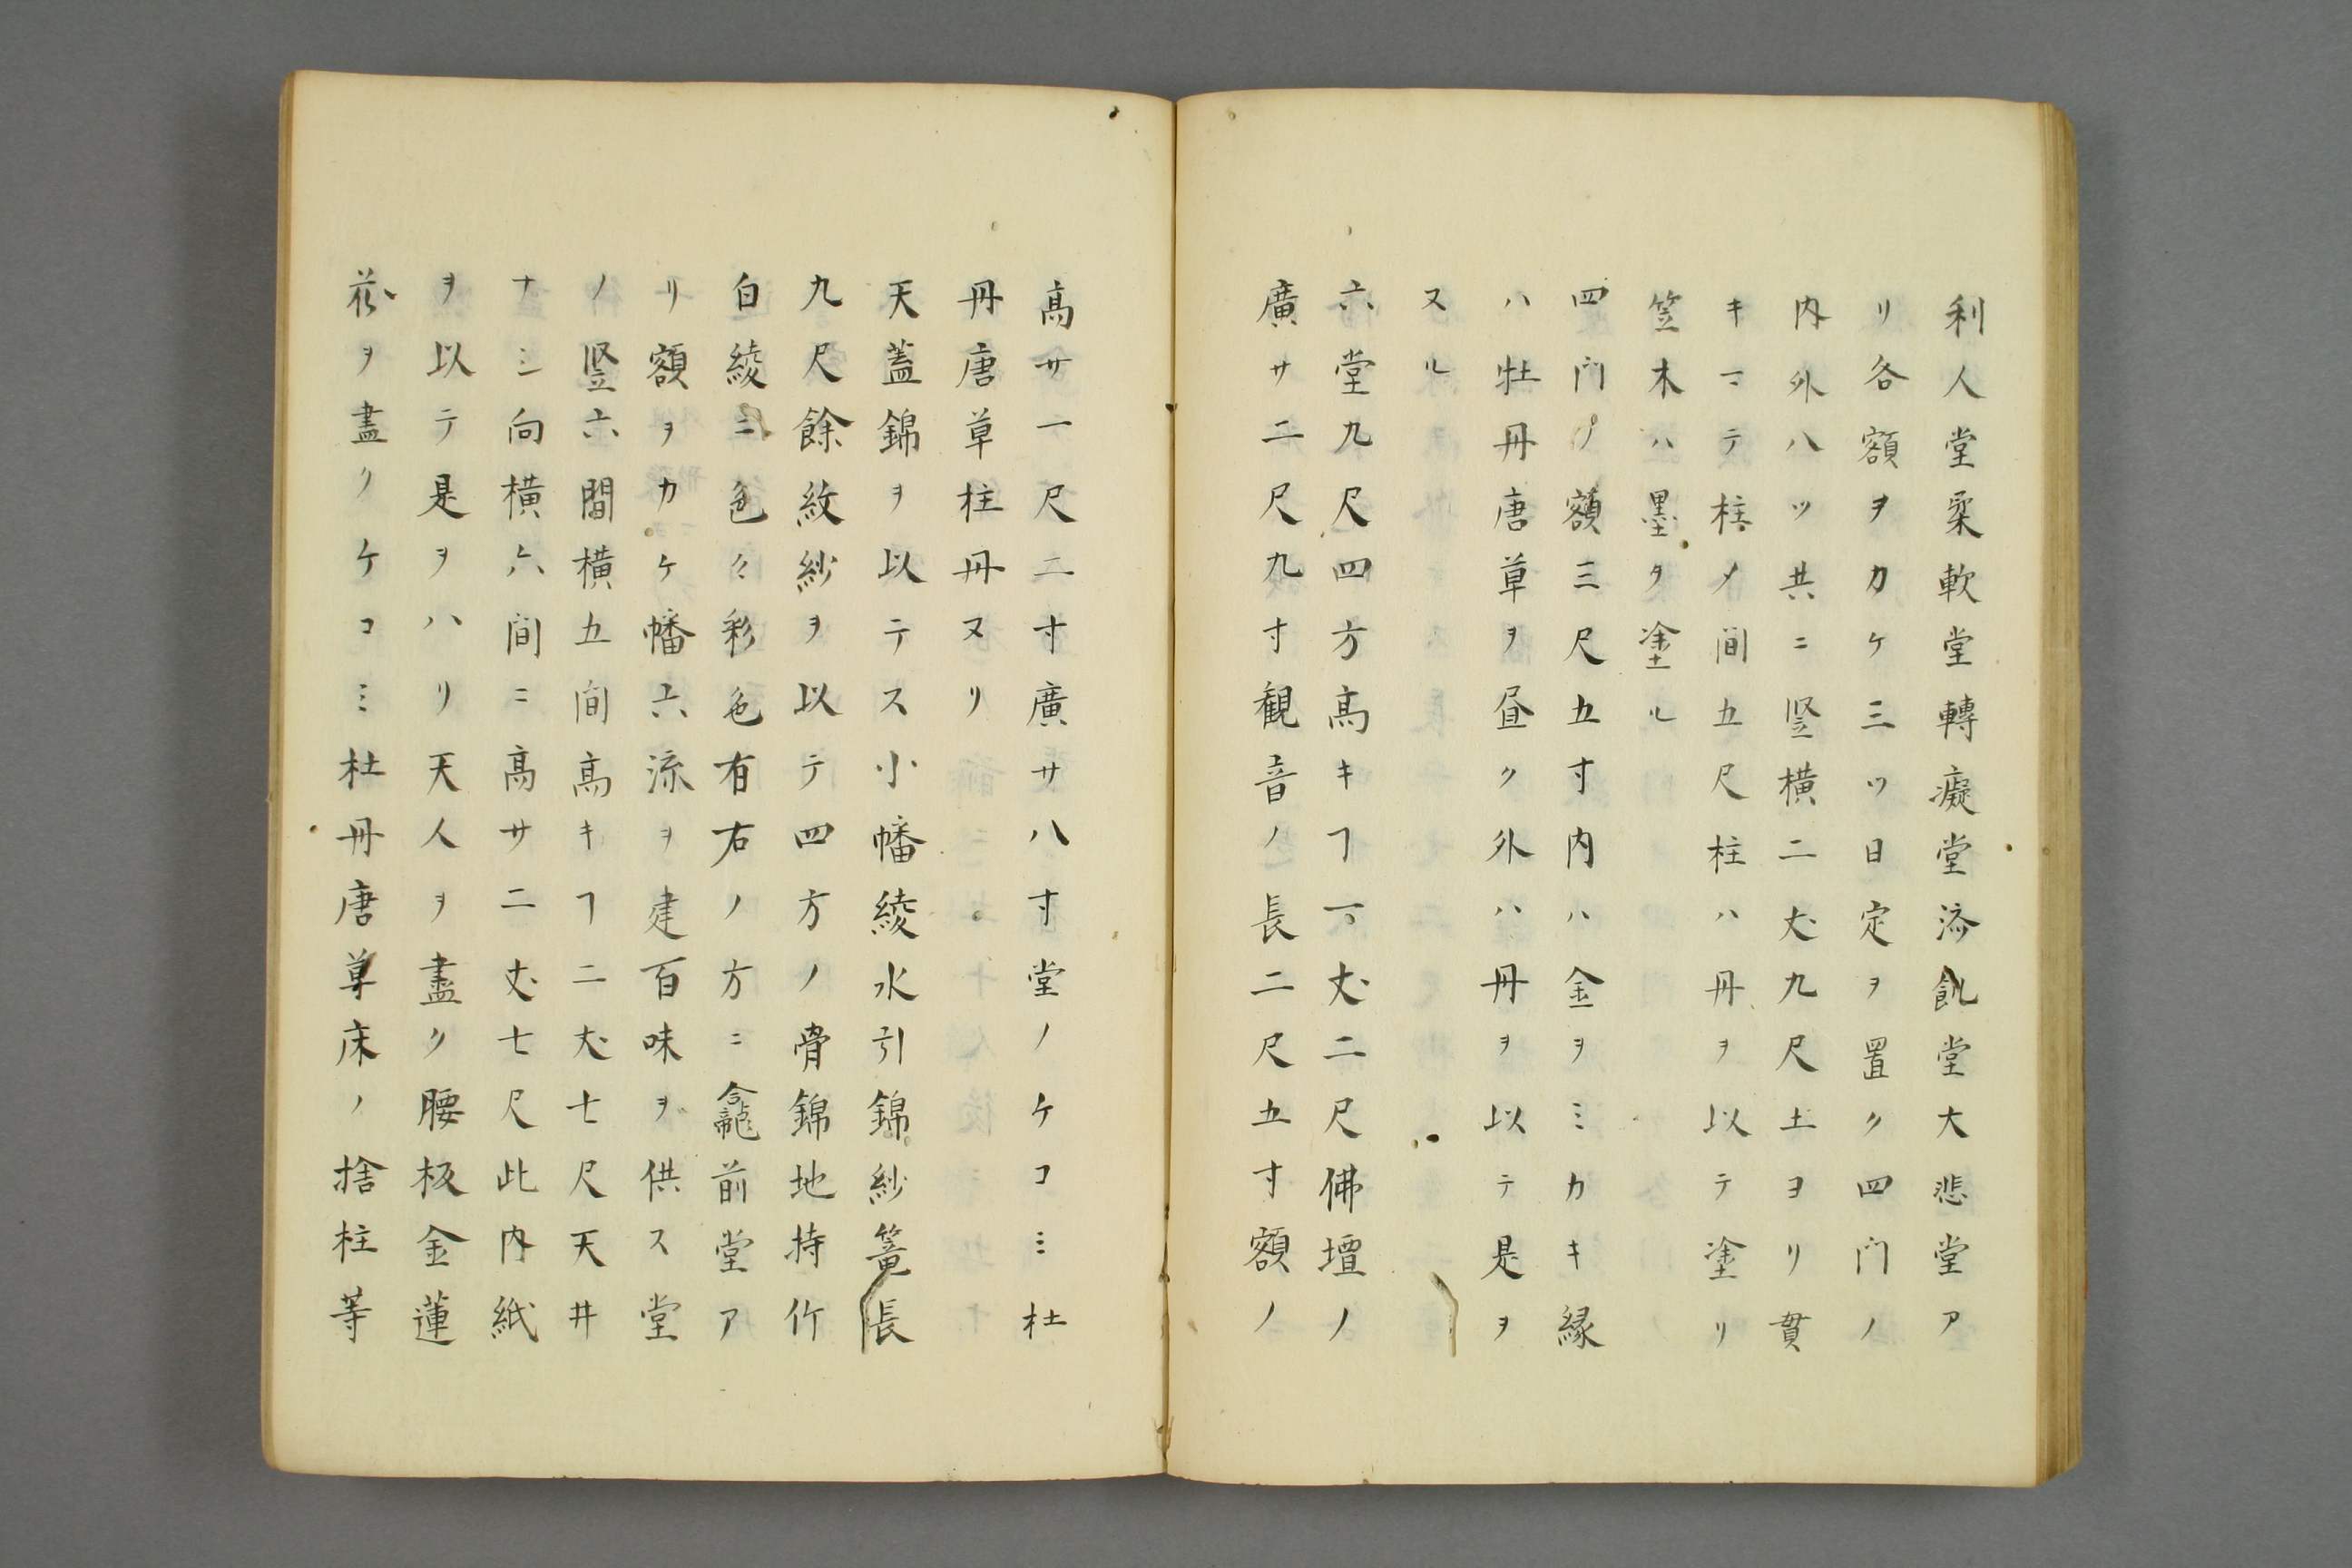 利人堂柔軟堂轉癡堂済飢堂大悲堂ア
リ各額ヲカケ三ツ日定ヲ置ク四门ノ
内外八ツ共ニ竪横二丈九尺土ヨリ貫
キマテ柱ノ间五尺柱ハ丹ヲ以テ塗リ
笠木ハ墨タ塗ル
四门ノ額三尺五寸内ハ金ヲミカキ縁
ハ牡丹唐草ヲ昼ク外ハ丹ヲ以テ是ヲ
ヌル
六堂九尺四方高キヿ一丈二尺佛壇ノ
廣サ二尺九寸観音ノ長二尺五寸額ノ
高サ一尺二寸廣サ八寸堂ノケコミ杜
丹唐草柱丹ヌリ
天蓋錦ヲ以テス小幡綾水引錦紗篭長
九尺餘紋紗ヲ以テ四方ノ骨錦地持竹
白綾ニ色々彩色有右ノ方ニ龕前堂ア
リ額ヲカケ幡六流ヲ建百味ヲ供ス堂
ノ竪六間横五间高キヿ二丈七尺天井
ナシ向横六间ニ高サ二丈七尺此内紙
ヲ以テ是ヲハリ天人ヲ畫ク腰板金蓮
花ヲ畫クケコミ杜丹唐草床ノ捨柱等